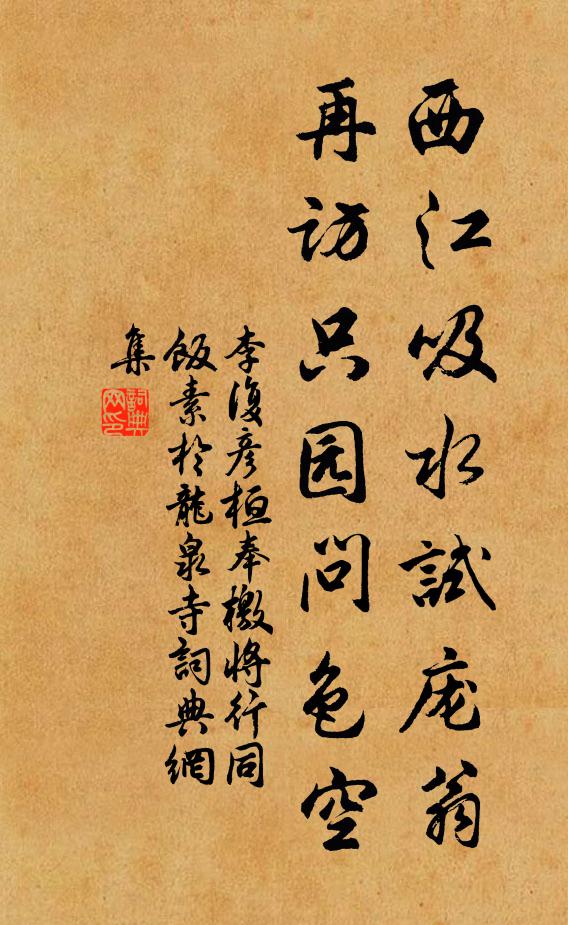 西江吸水試庞翁
再访只园问色空
李復彦桓奉檄将行同
飯素於龍泉寺詞典網
集
詞典
网印